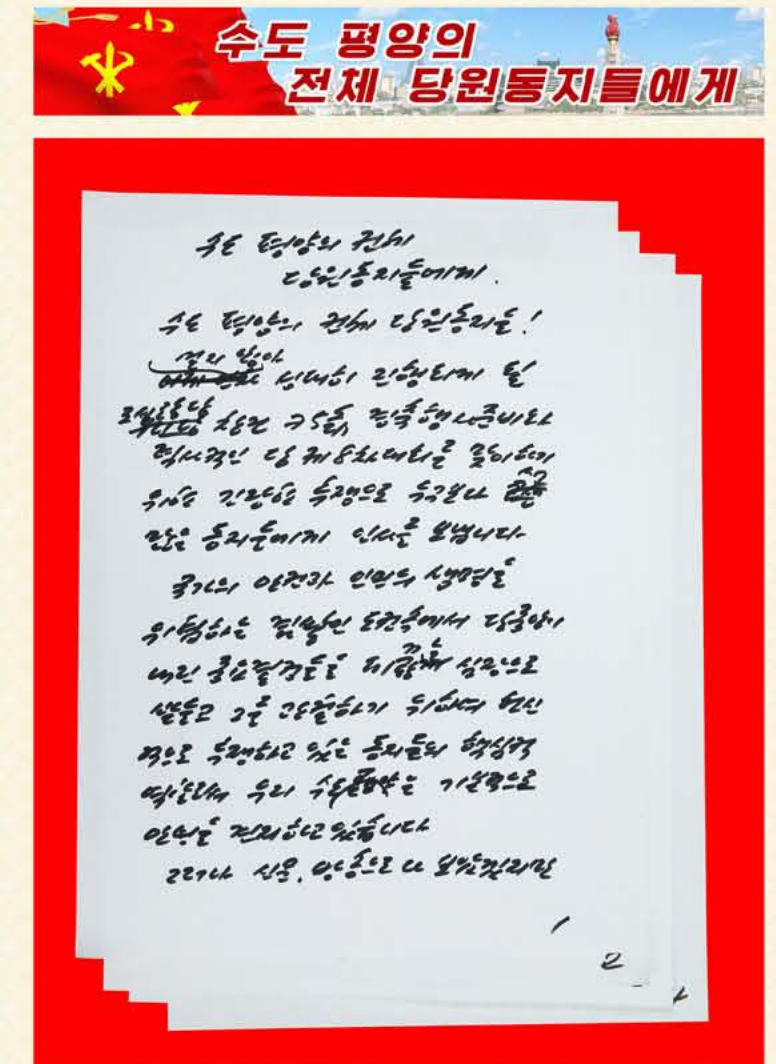 수도 평양의
전체 당원동지들에게
수도 평양의 전체
당원동지들에게.
수도 평양의 전체 당원동지들!
성대히 진행되게 될
로동당 창건 75돐 경축행사준비와
력사적인 당 제8차대회를 맞이하기
위한 긴장한 투쟁으로 누구보다
많은 동지들에게 인사를 보냅니다.
국가의 안전과 인민의 생명을
위협하는 도전속에서 당중앙이
내린 중요결정들을 심장으로
받들고 그를 관철하기 위하여 헌신
적으로 투쟁하고 있는 동지들의 핵심적
역할로 하여 우리 수도 평양은 기본적으로
안정을 견지하고있습니다
그러나 신문, 방송으로
1
2